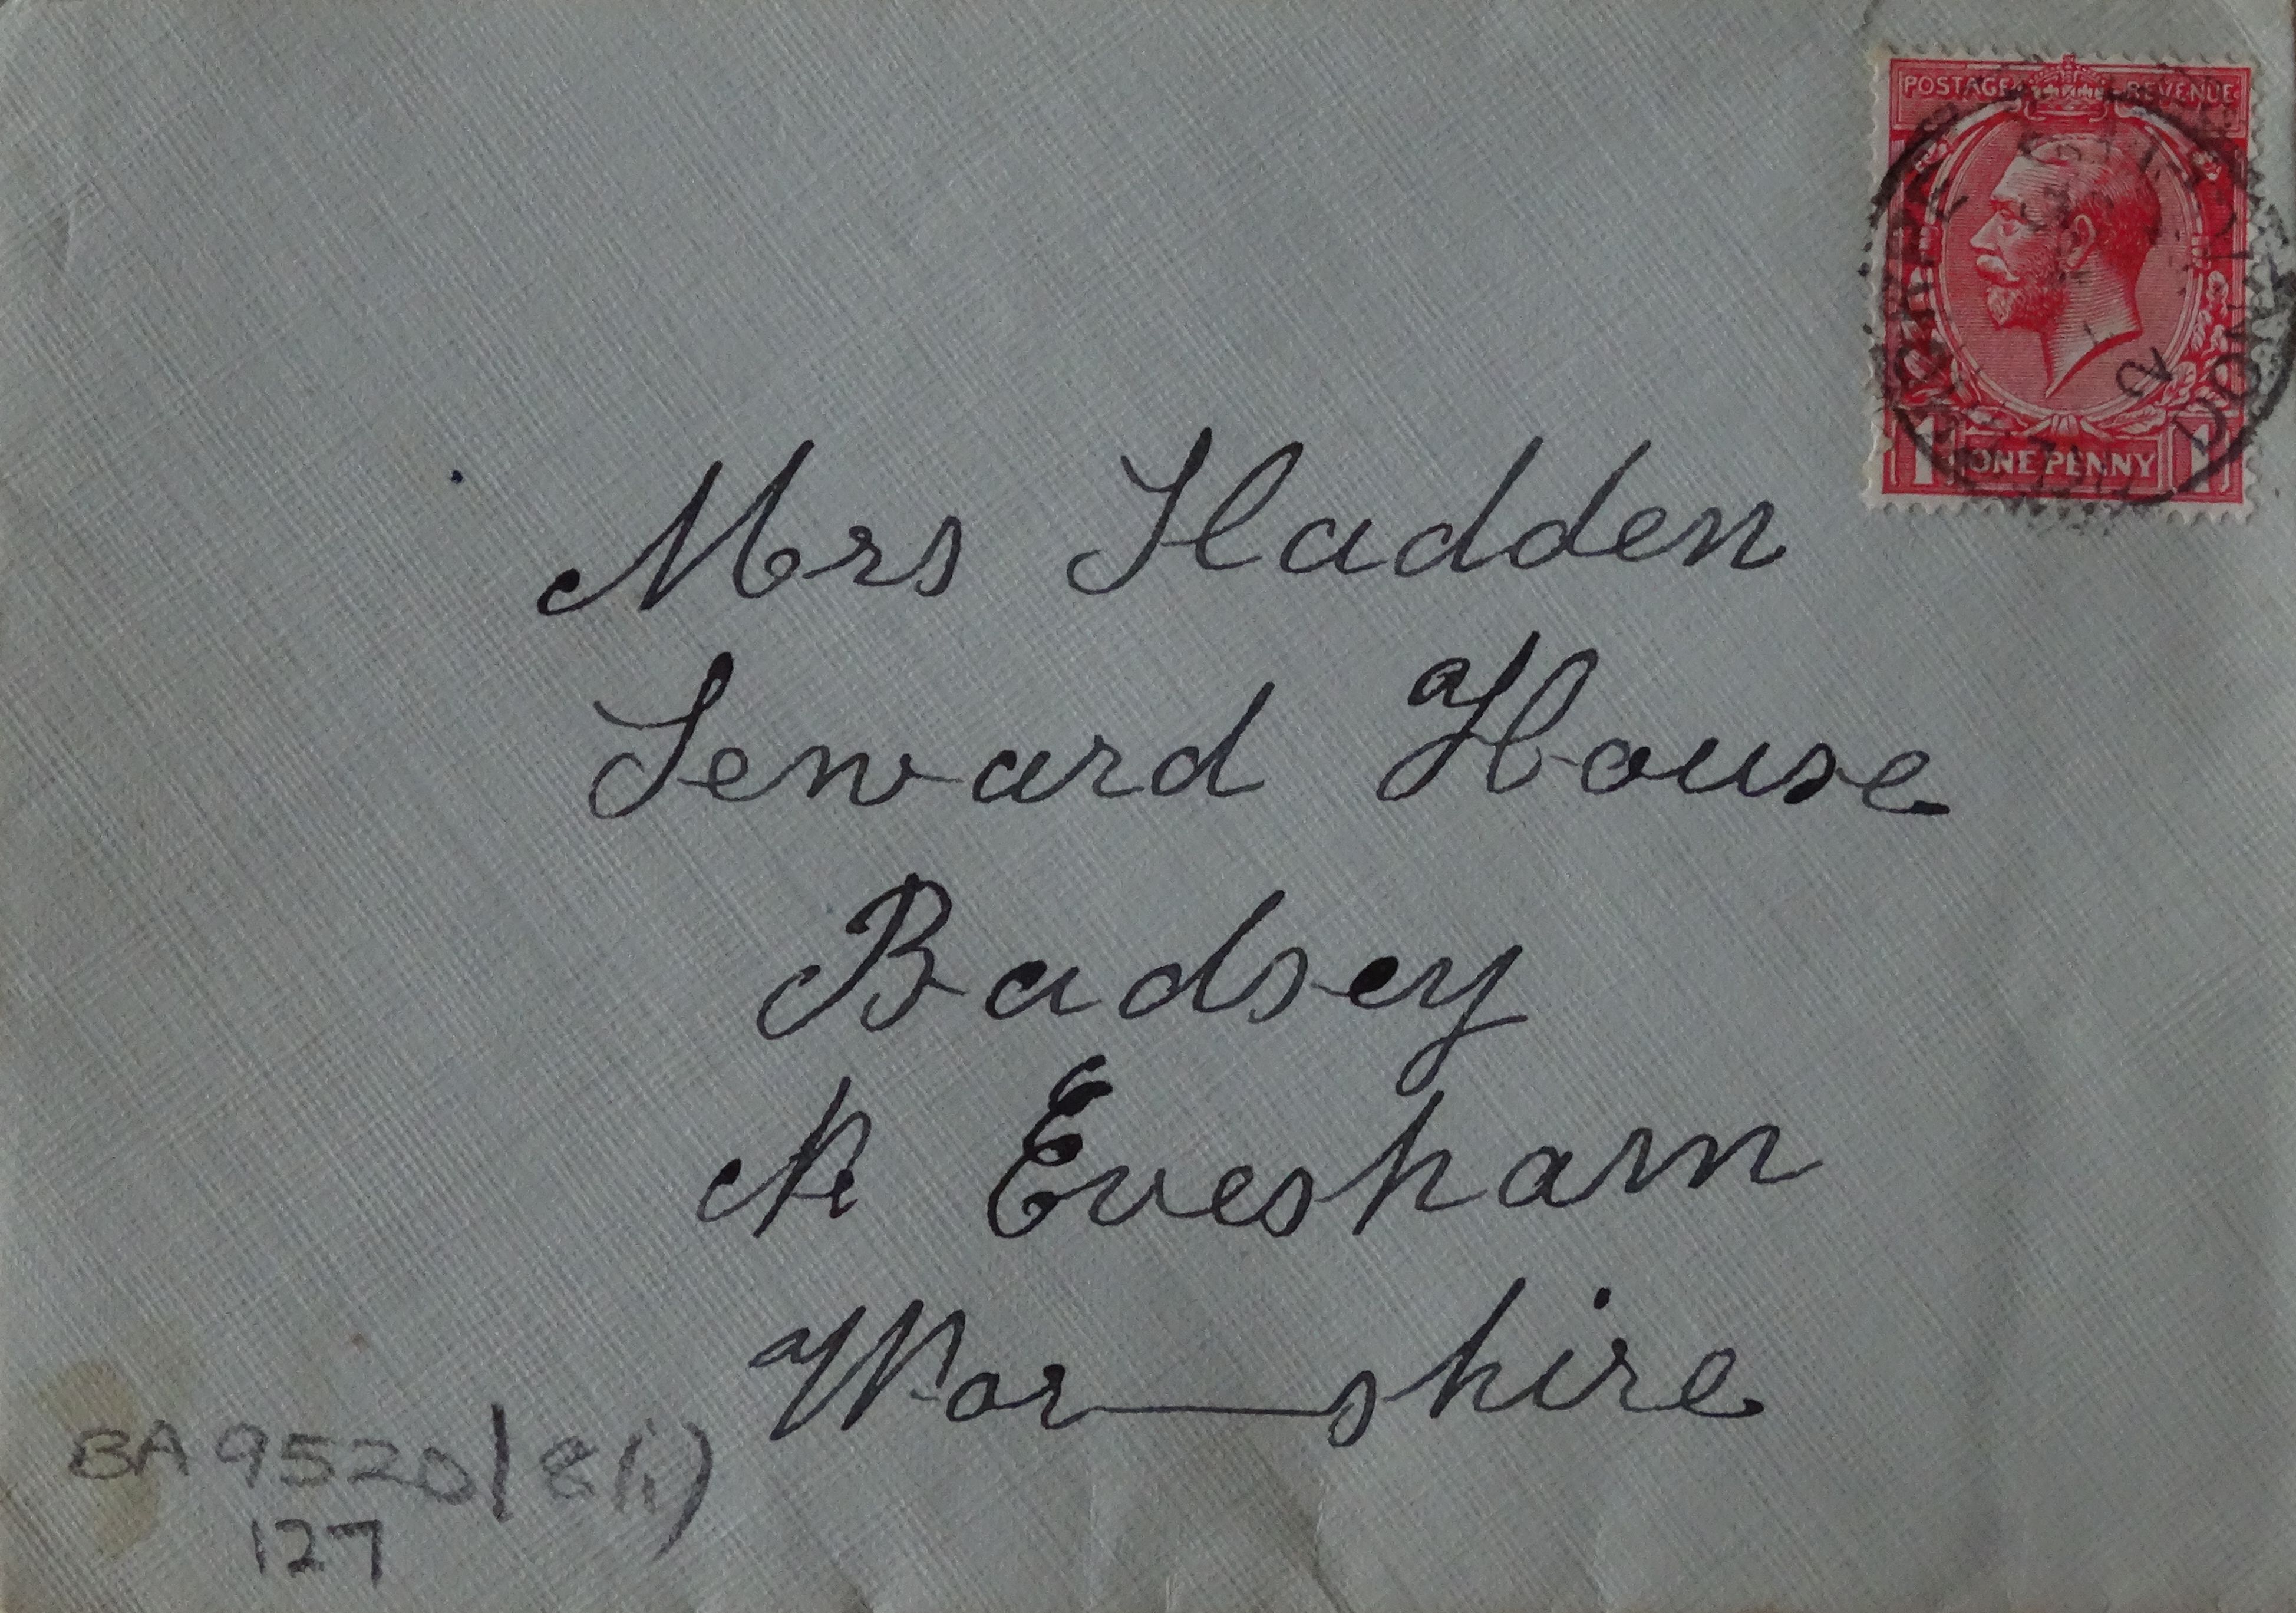 POSTAGE REVENUE
1 ONE PENNY 1
Mrs Hadden
Seward House
Badsey
Nr Evesham
Wor—shire
BA 9520/8(i)
127